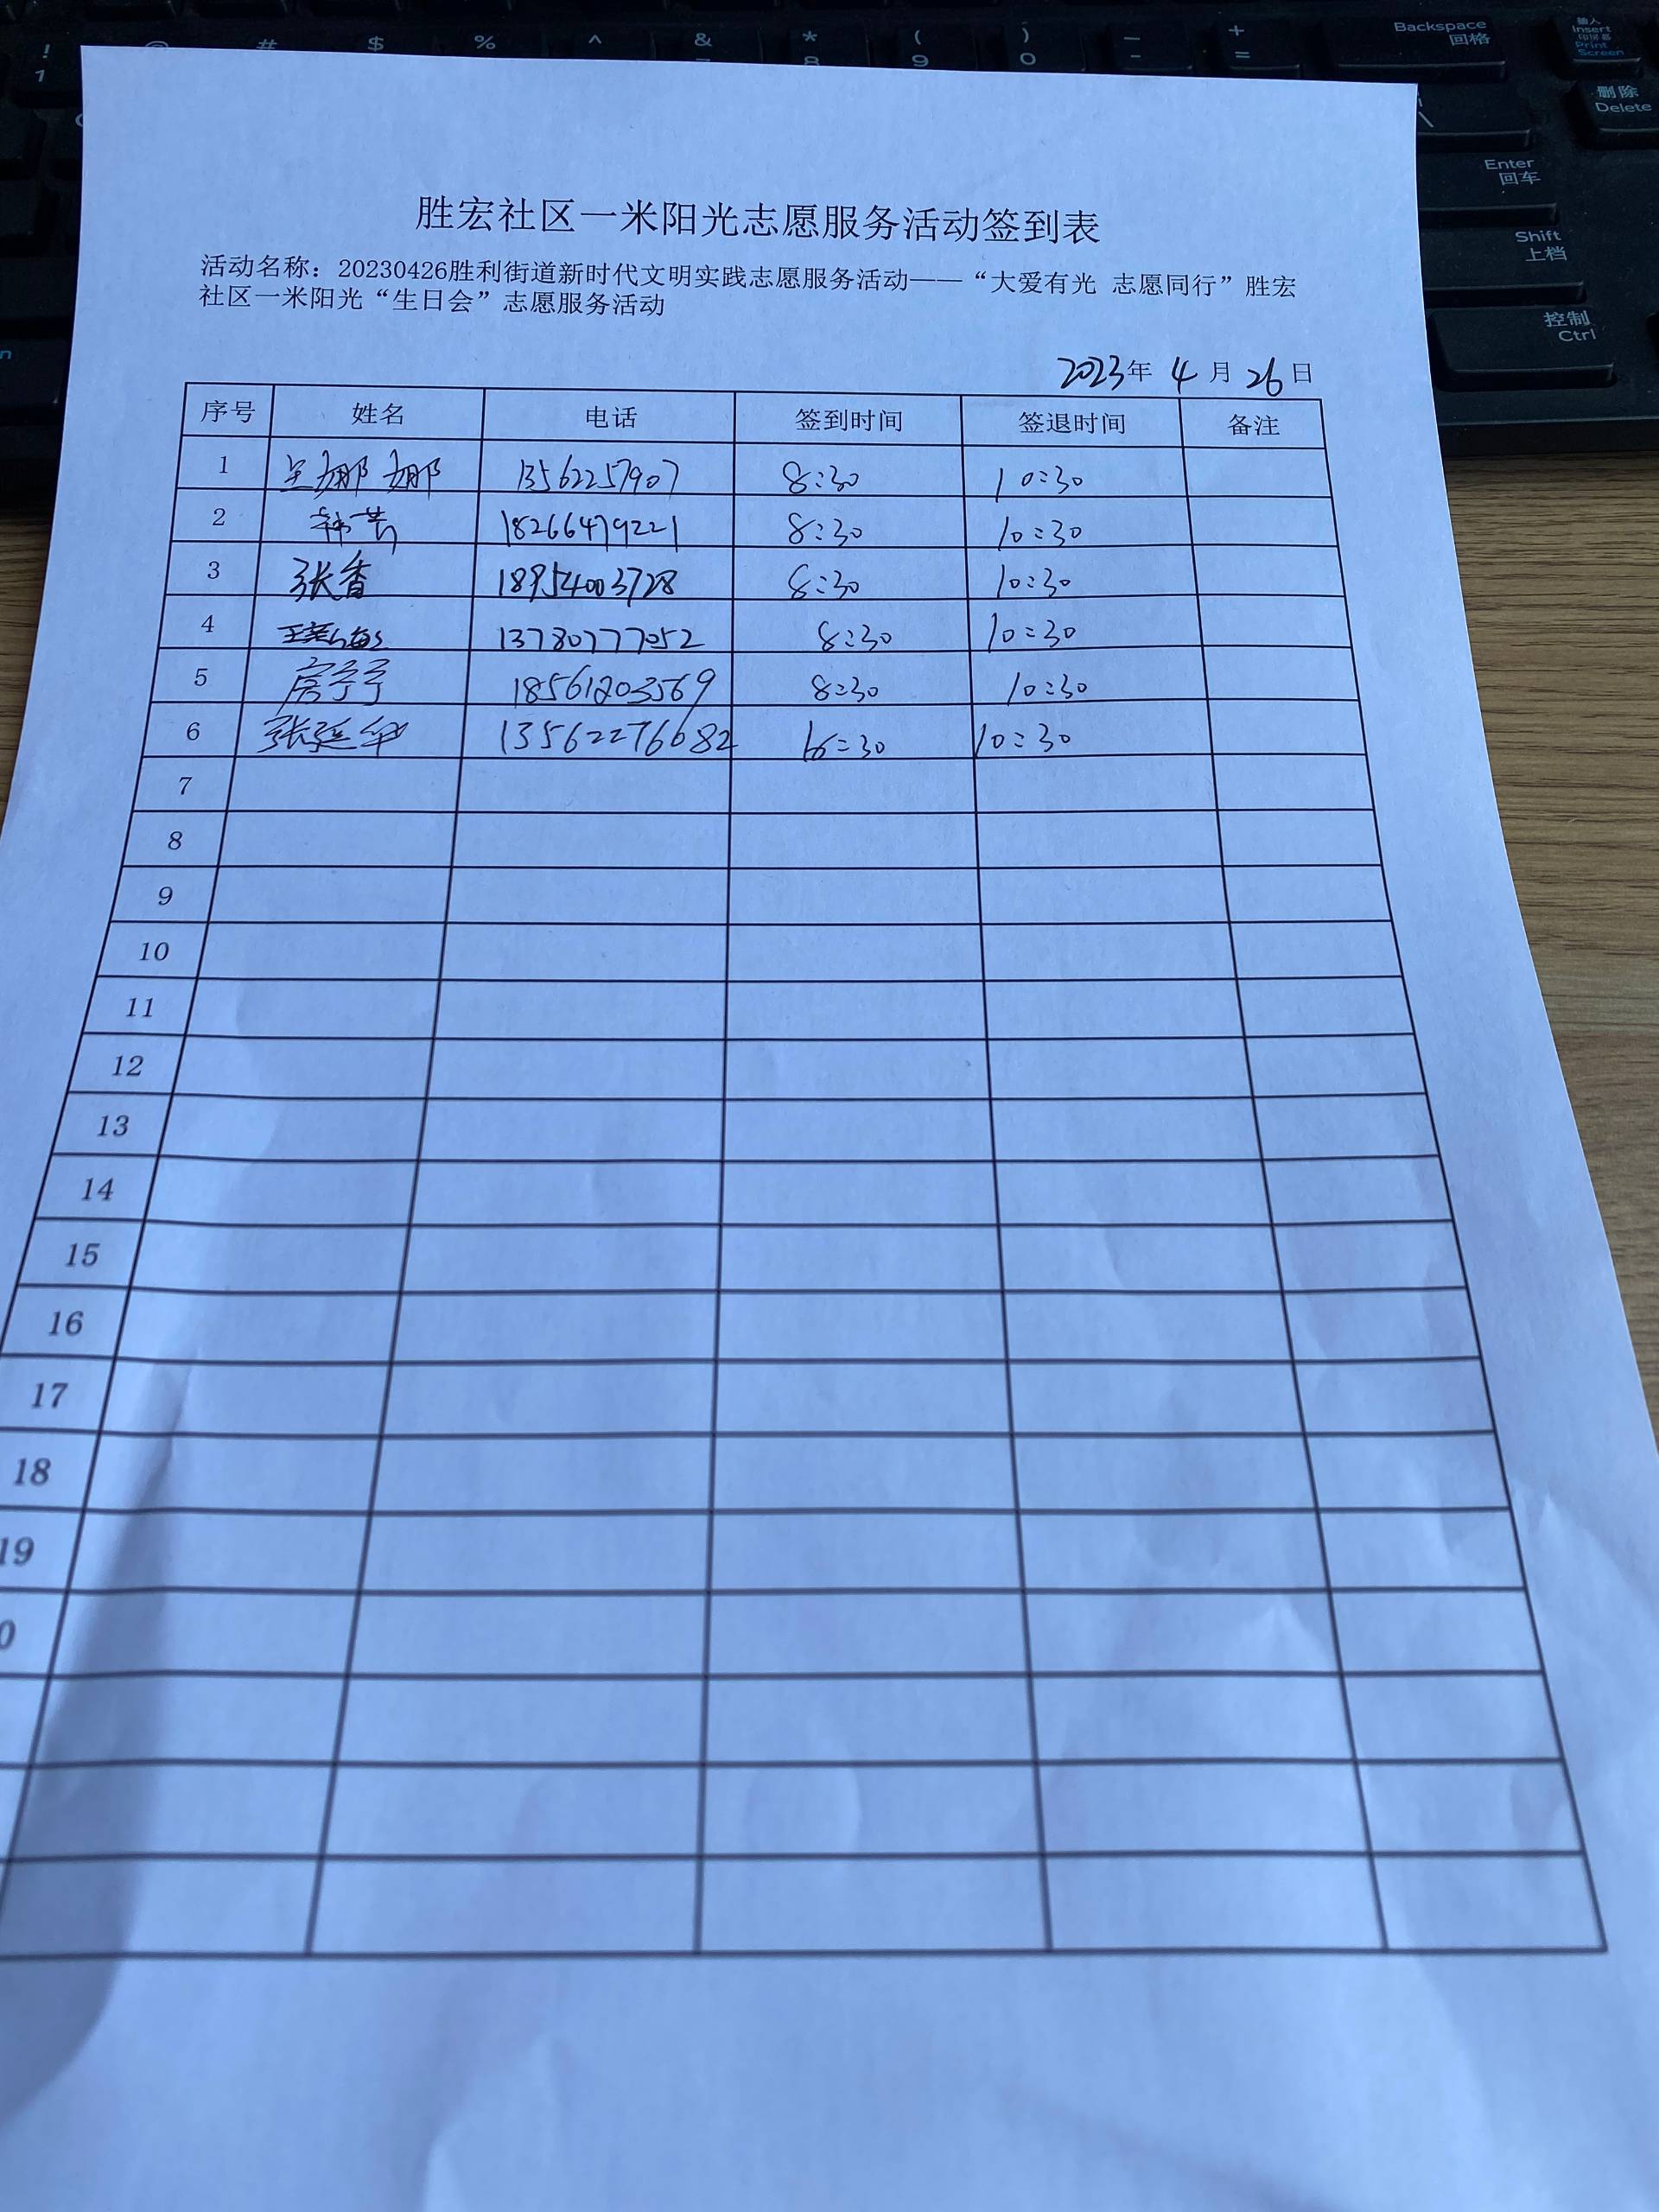 ! 1 @ # $ % ^ & * 8 ( 9 ) 0 — - + = Backspace 回格 输入 Insert 印屏幕 Print Screen
\ 删除 Delete
Enter 回车
Shift 上档
控制 Ctrl
胜宏社区一米阳光志愿服务活动签到表
活动名称：20230426胜利街道新时代文明实践志愿服务活动——“大爱有光 志愿同行”胜宏
社区一米阳光“生日会”志愿服务活动
2023年 4 月 26 日
序号 姓名 电话 签到时间 签退时间 备注
1 娜娜 13562257907 8:30 10:30
2 韩芸 18266479221 8:30 10:30
3 张香 18954003728 8:30 10:30
4 13780777052 8:30 10:30
5 18561203569 8:30 10:30
6 张延华 13562276682 :30 10:30
7
8
9
10
11
12
13
14
15
16
17
18
19
0